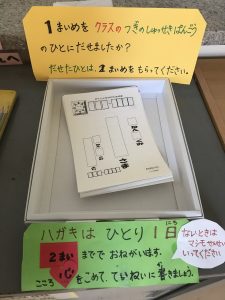 1まいめを クラスの つぎのしゅっせきばんごう
のひとにだせましたか？
だせたひとは、2まいめをもらってください。
ハガキは ひとり 1日
にち
2まい までで おねがいします。
心をこめて、ていねいに書きましょう。
こころ
ないときは
マシモ せんせいに
いってください